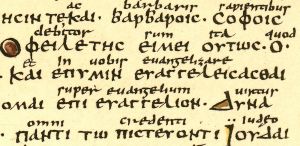 ac barbaris sapientibus
ΗСΙΝΤЄΚΑΙ· ΒΑΡΒΑΡΟΙС· СΟΦΟΙС
debitor sum ita quod
ΟΦЄΙΛЄΤΗС ЄΙΜЄΙ ΟΥΤШС· Ο·
et in vobis evangelizare
ΚΑΙ ЄΠΥΜΙΝ ЄΥΑΓΓЄΛΙСΑСΘΑΙ
super evangelium virtus
ΟΜΑΙ ЄΠΙ ЄΥΑΓΓЄΛΙΟΝ· ΔΥΝΑ
omni credenti iudeo
ΠΑΝΤΙ ΤШ ΠΙСΤЄΥΟΝΤΙ ΙΟΥΔΑΙ